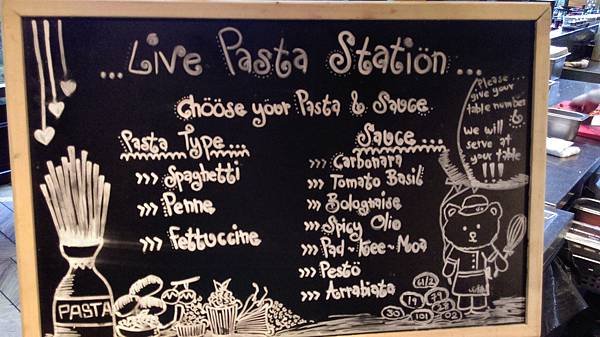 ...Live Pasta Station...
Chööse your Pasta & Sauce
Pasta Type...
>>> Spaghetti
>>> Penne
>>> Fettuccine
Sauce....
>>> Carbonara
>>> Tomato Basil
>>> Bolognaise
>>> Spicy Olio
>>> Pad-Kee-Moa
>>> Pesto
>>> Arrabiata
Please
give your
table number
&
we will
serve at
your table
!!!
PASTA
61/2
19
30
101
02